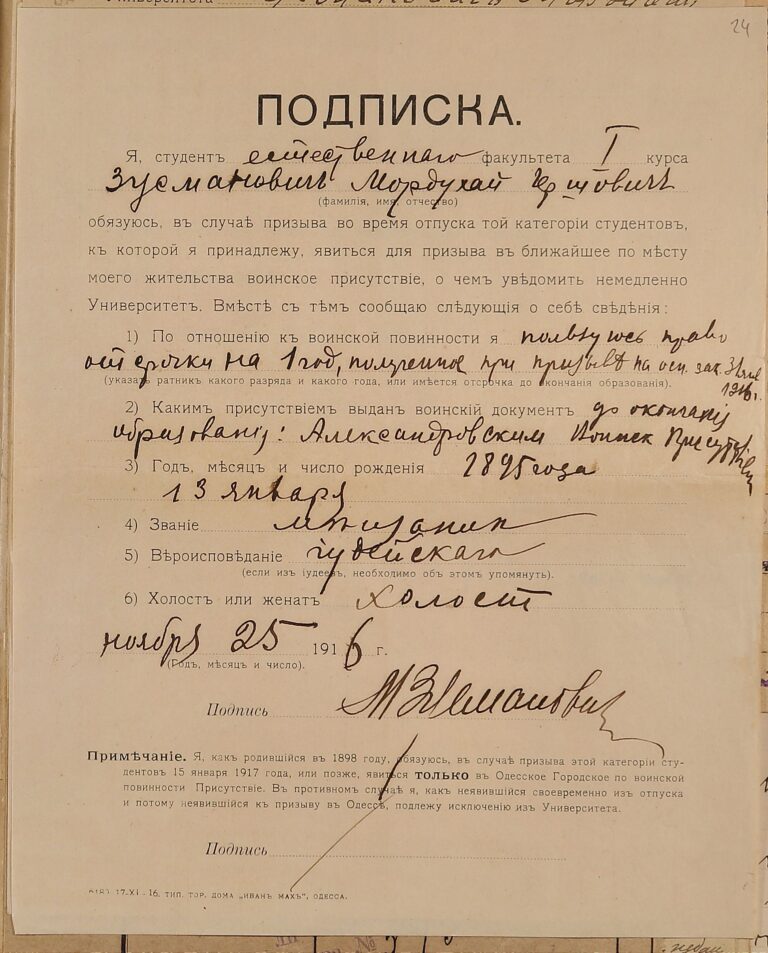 Университета
24
ПОДПИСКА.
Я, студентъ естественнаго факультета I курса
Зусмановичъ Мордухай Гершовичъ
(фамилія, имя, отчество)
обязуюсь, въ случаѣ призыва во время отпуска той категоріи студентовъ,
къ которой я принадлежу, явиться для призыва въ ближайшее по мѣсту
моего жительства воинское присутствіе, о чемъ увѣдомить немедленно
Университетъ. Вмѣстѣ съ тѣмъ сообщаю слѣдующія о себѣ свѣдѣнія:
1) По отношенію къ воинской повинности я пользуюсь право
отсрочки на 1 год, полученное при призывѣ на осн. зак.
1916 г.
(указать ратник какого разряда и какого года, или имѣется отсрочка до окончанія образованія).
2) Какимъ присутствіемъ выданъ воинскій документъ до окончанія
образованія: Александровским Воинск
3) Годъ, мѣсяцъ и число рожденія 1895 года
13 января
4) Званіе мѣщанин
5) Вѣроисповѣданіе іудейскаго
(если изъ іудеевъ, необходимо объ этомъ упомянуть).
6) Холостъ или женатъ холост
ноября 25 1916 г.
(Годъ, мѣсяцъ и число).
Подпись М Зусманович
Примѣчаніе. Я, какъ родившійся въ 1898 году, обязуюсь, въ случаѣ призыва этой категоріи сту-
дентовъ 15 января 1917 года, или позже, явиться ТОЛЬКО въ Одесское Городское по воинской
повинности Присутствіе. Въ противномъ случаѣ я, какъ неявившійся своевременно изъ отпуска
и потому неявившійся къ призыву въ Одессѣ, подлежу исключенію изъ Университета.
Подпись
17-XI-16. ТИП. ТОР. ДОМА „ИВАНЪ МАХЪ", ОДЕССА.
№